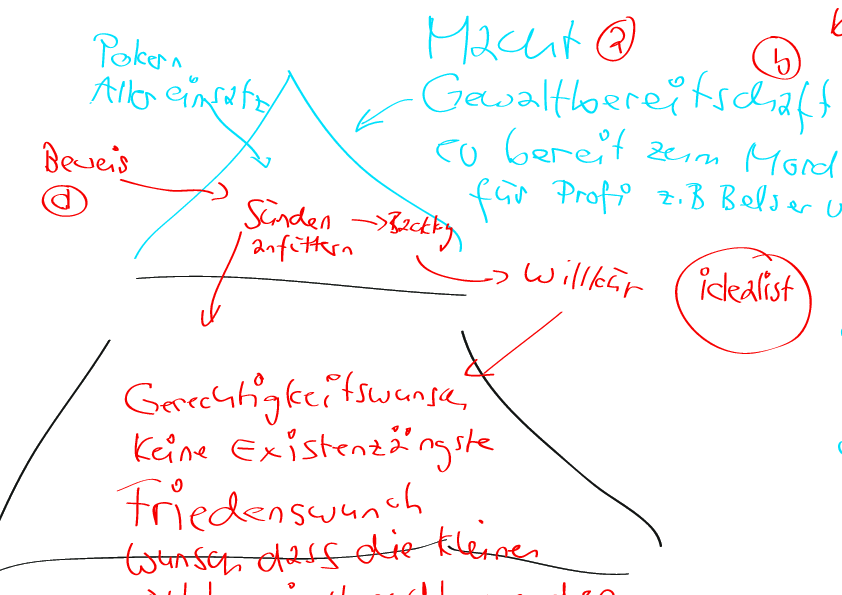 Macht a
b
Pokern
Aller einsatz
Gewaltbereitschaft
so bereit zum Mord
für Profi z.B Belser u
Beweis
d
Sünden
anfüttern
Willkür
idealist
Gerechtigkeitswunsch
keine Existenzängste
Friedenswunch
wunsch dass die kleinen